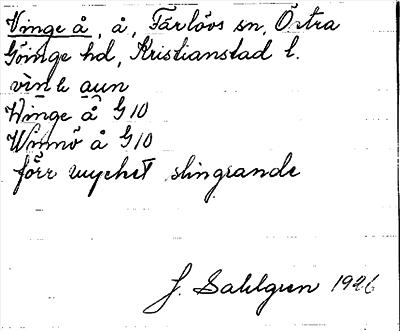 Vinge å, å, Färlövs sn, Östra
Göinge hd, Kristianstad l.
Winge å G10
Winnö å G10
förr mycket slingrande
J. Sahlgren 1926